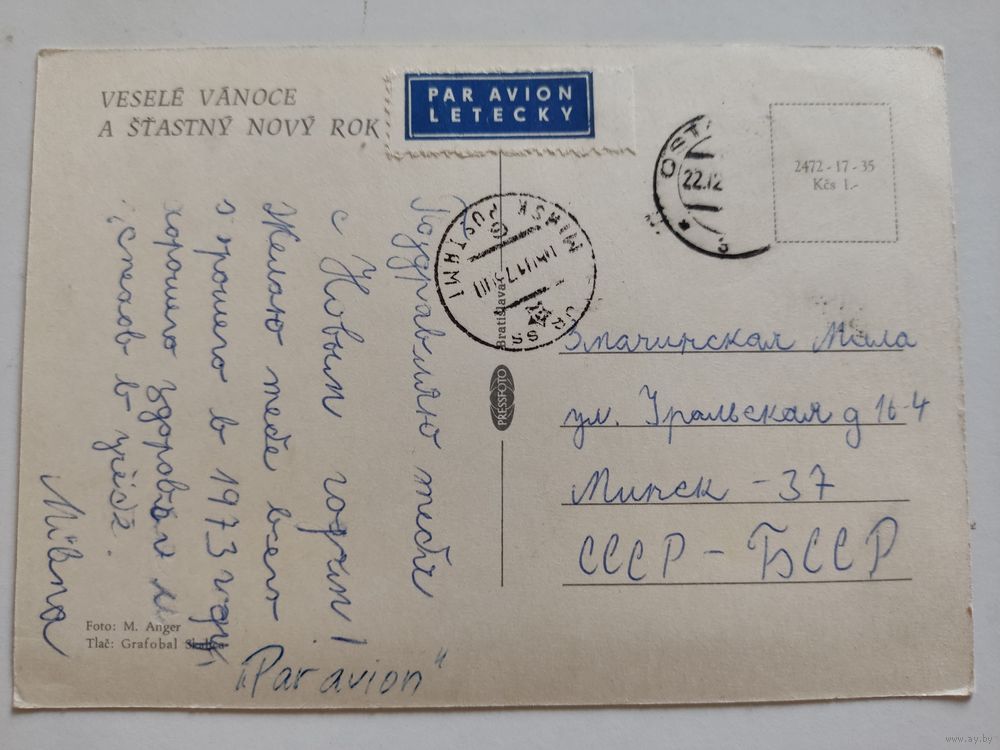 VESELÉ VÁNOCE
A ŠŤASTNÝ NOVÝ ROK
PAR AVION
LETECKY
22.12
2472 - 17 - 35
Kčs 1.-
MINSK
POSTAMT
Bratislava
PRESSFOTO
Поздравляю тебя
с Новым годом!
Желаю тебе всего
хорошего в 1973 году,
хорошего здоровья и
успехов в учёбе.
Змачинская Мила
ул. Уральская д 16-4
Минск - 37
СССР - БССР
Foto: M. Anger
Tlač: Grafobal Skalica
„Par avion"
www.ay.by